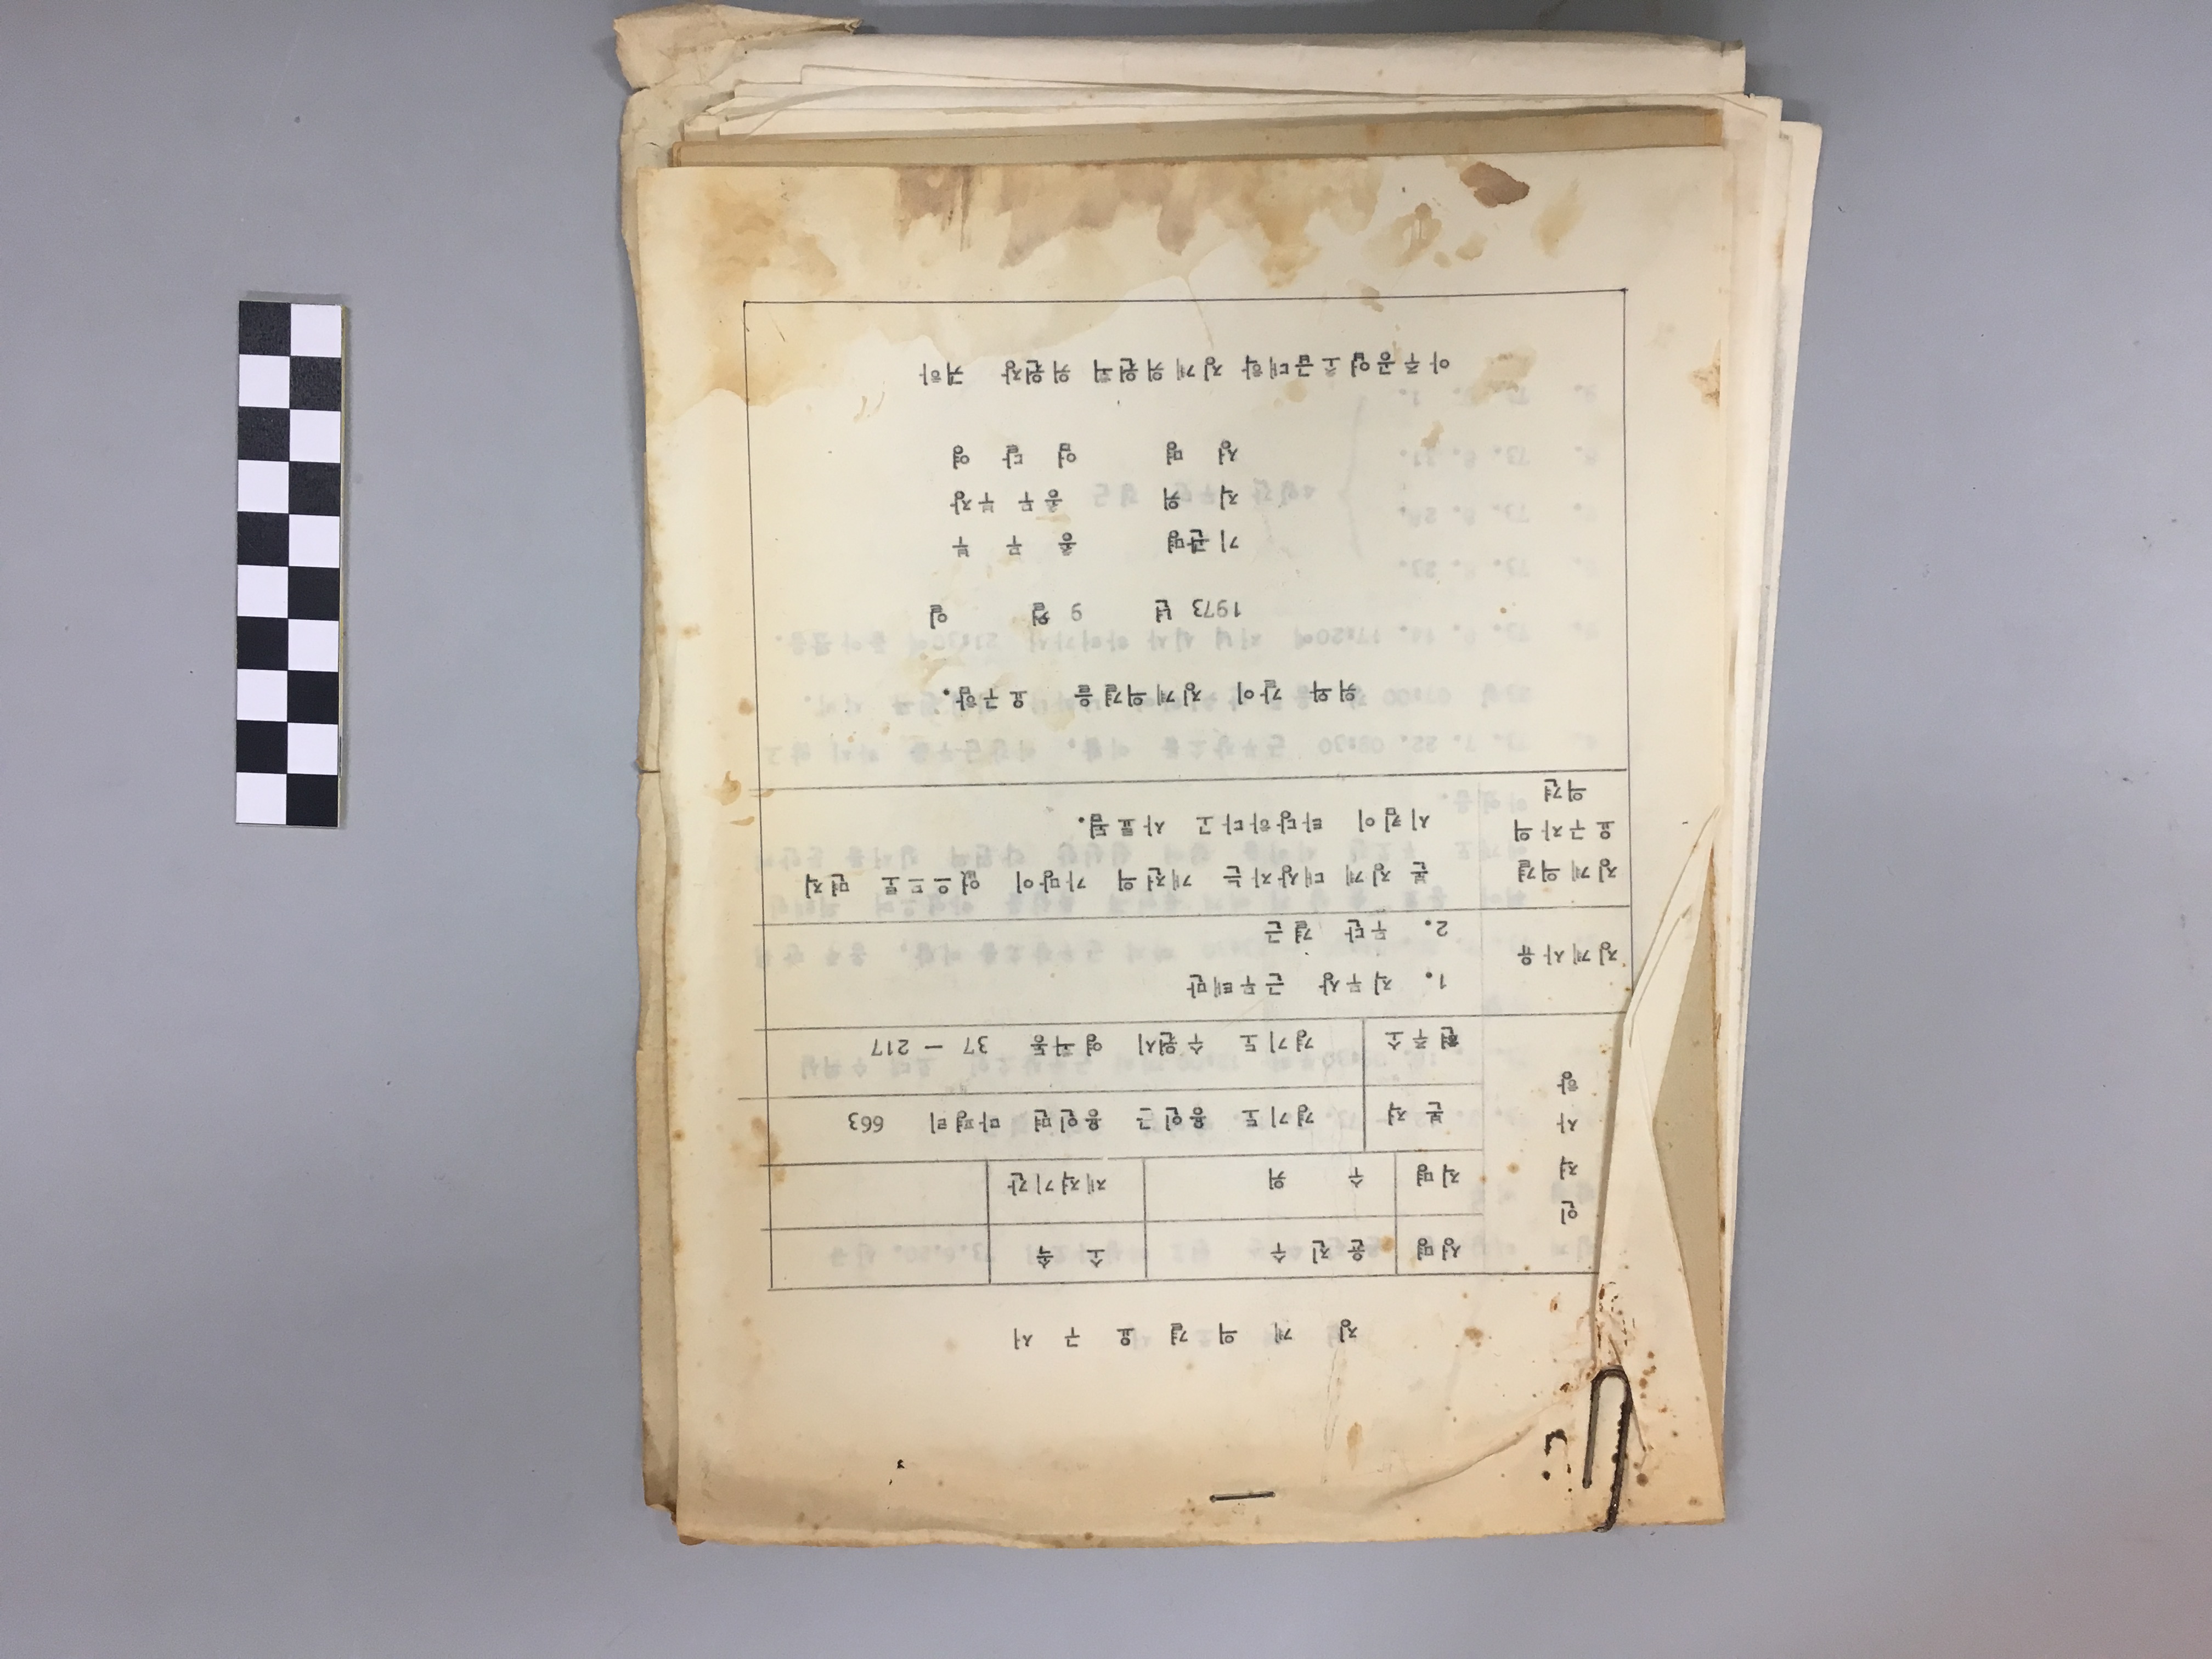 징 계 의 결 요 구 서
인 적 사 항
성명 윤진수 소 속
직명 수 위 재직기간
본 적 경기도 용인군 용인면 마평리 663
현주소 경기도 수원시 영화동 37 - 217
징계사유
1. 직무상 근무태만
2. 무단 결근
징계의결
요구자의
의견
본 징계 대상자는 개전의 가망이 없으므로 면직
시킴이 타당하다고 사료됨.
위와 같이 징계의결을 요구함.
1973 년 9 월 일
기관명 총 무 부
직 위 총무부장
성 명 엄 달 영
아주공업초급대학 징계위원회 위원장 귀하